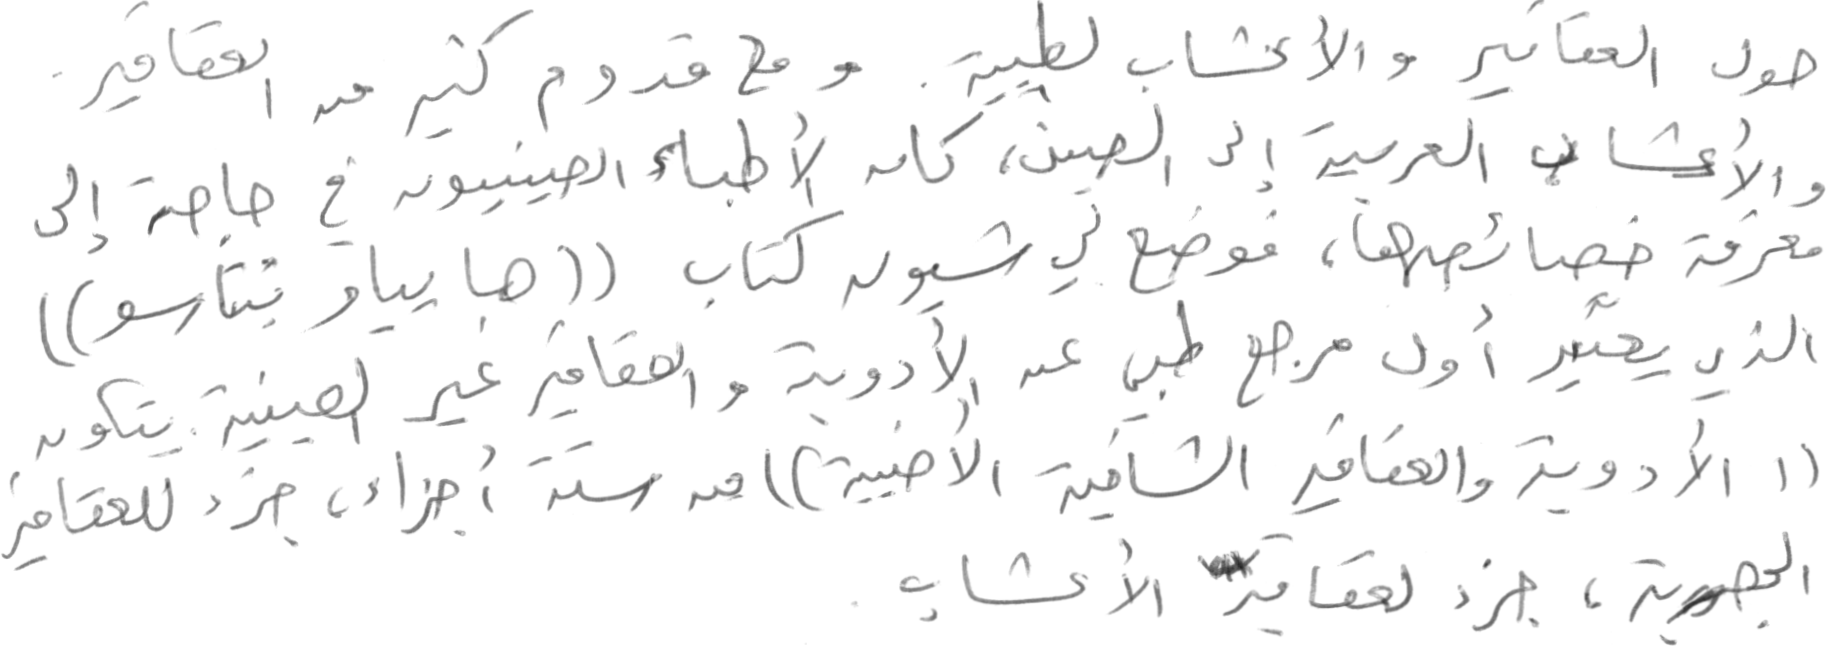 حول العقاقير والأعشاب لطبية. ومع قدوم كثير من العقاقير
والأعشاب العربية إلى الصين، كان الأطباء الصينيون في حاجة إلى
معرفة خصائصها، فوضع لي شيون كتاب ((هاي ياو بنتاسو))
الذي يعتبر أول مرجع طبي عن الأدوية والعقاقير غير الصينية. يتكون
((الأدوية والعقاقير الشافية الأجنبية)) من ستة أجزاء، جزء للعقاقير
الحجرية، جزء لعقاقير الأعشاب.